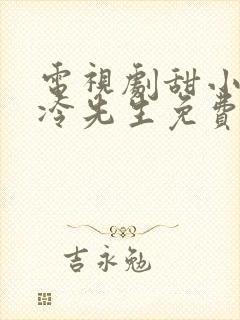 電視劇甜小
冷先生免費
吉永勉